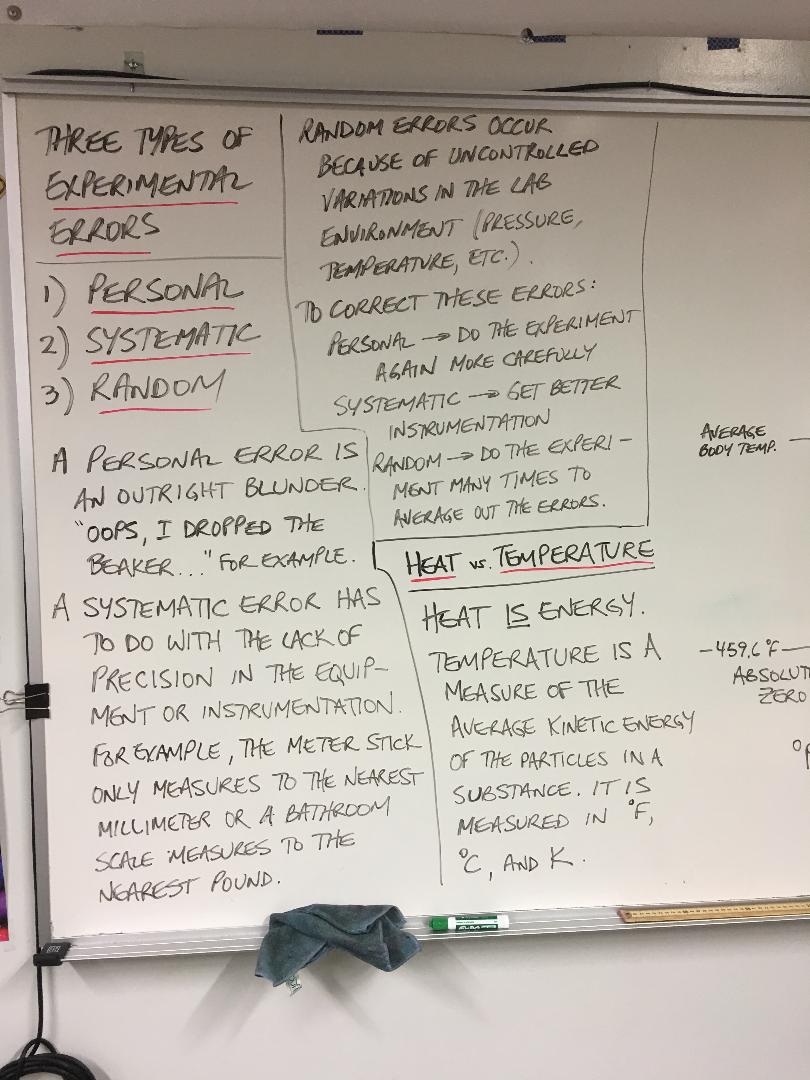 THREE TYPES OF
EXPERIMENTAL
ERRORS
1) PERSONAL
2) SYSTEMATIC
3) RANDOM
A PERSONAL ERROR IS
AN OUTRIGHT BLUNDER.
"OOPS, I DROPPED THE
BEAKER..." FOR EXAMPLE.
A SYSTEMATIC ERROR HAS
TO DO WITH THE LACK OF
PRECISION IN THE EQUIP-
MENT OR INSTRUMENTATION.
FOR EXAMPLE, THE METER STICK
ONLY MEASURES TO THE NEAREST
MILLIMETER OR A BATHROOM
SCALE MEASURES TO THE
NEAREST POUND.
RANDOM ERRORS OCCUR
BECAUSE OF UNCONTROLLED
VARIATIONS IN THE LAB
ENVIRONMENT (PRESSURE,
TEMPERATURE, ETC.).
TO CORRECT THESE ERRORS:
PERSONAL → DO THE EXPERIMENT
AGAIN MORE CAREFULLY
SYSTEMATIC → GET BETTER
INSTRUMENTATION
RANDOM → DO THE EXPERI-
MENT MANY TIMES TO
AVERAGE OUT THE ERRORS.
HEAT vs. TEMPERATURE
HEAT IS ENERGY.
TEMPERATURE IS A
MEASURE OF THE
AVERAGE KINETIC ENERGY
OF THE PARTICLES IN A
SUBSTANCE. IT IS
MEASURED IN °F,
°C, AND K.
AVERAGE
BODY TEMP.
-459.6°F
ABSOLUT
ZERO